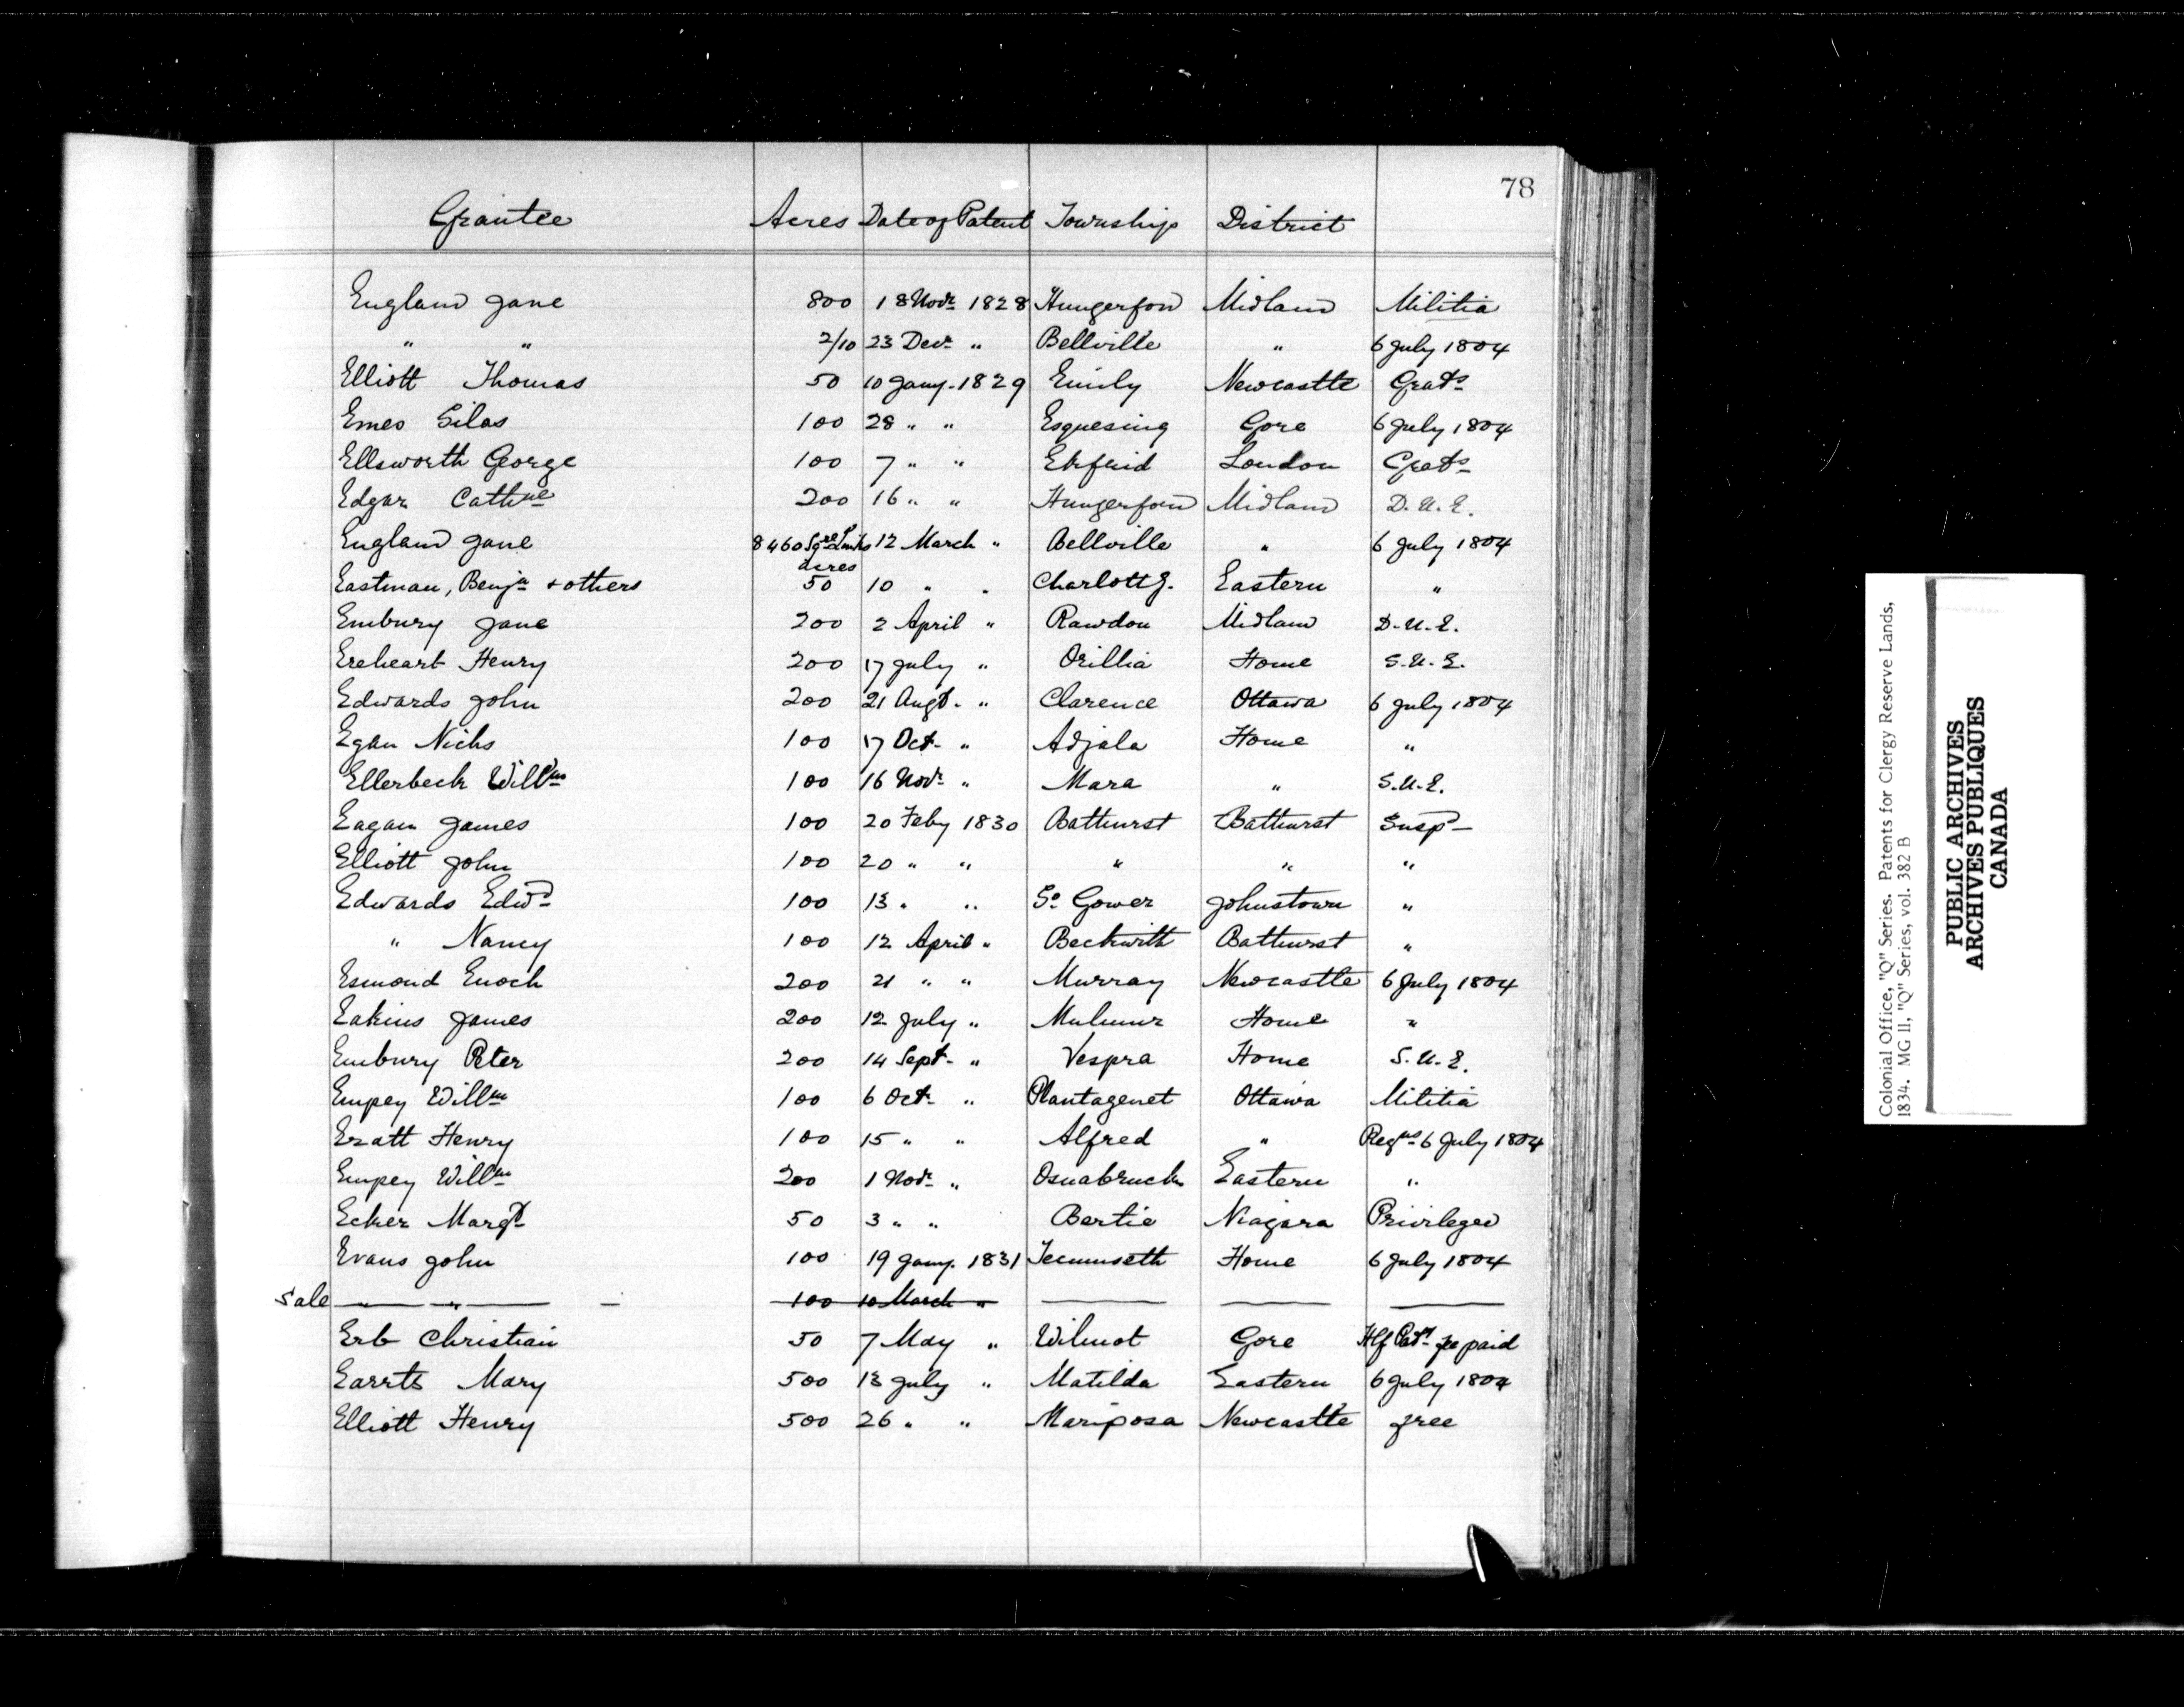 78
Grantee Acres Date of Patent Township District
England Jane 800 18 Novr 1828 Hungerford Midland Militia
" " 2/10 23 Decr " Bellville " 6 July 1804
Elliott Thomas 50 10 Jany. 1829 Emily Newcastle Grats
Emes Silas 100 28 " " Esquesing Gore 6 July 1804
Ellsworth George 100 7 " " Ekfrid London Grats
Edgar Cathne 200 16 " " Hungerford Midland D.U.E.
England Jane 8460 Sqre Links 12 March " Bellville " 6 July 1804
acres
Eastman, Benja & others 50 10 " " Charlottg. Eastern "
Embury Jane 200 2 April " Rawdon Midland D.U.E.
Ereheart Henry 200 17 July " Orillia Home S.U.E.
Edwards John 200 21 Augt. " Clarence Ottawa 6 July 1804
Egan Nichs 100 17 Oct. " Adjala Home "
Ellerbeck Willm 100 16 Novr " Mara " S.U.E.
Eagan James 100 20 Feby 1830 Bathurst Bathurst Susp
Elliott John 100 20 " " " " "
Edwards Edwd 100 13 " " So Gower Johnstown "
" Nancy 100 12 April " Beckwith Bathurst "
Esmond Enoch 200 21 " " Murray Newcastle 6 July 1804
Eakins James 200 12 July " Mulmur Home "
Embury Peter 200 14 Sept. " Vespra Home S.U.E.
Empey Willm 100 6 Oct. " Plantagenet Ottawa Militia
Eratt Henry 100 15 " " Alfred " Regns 6 July 1804
Empey Willm 200 1 Novr " Osnabruck Eastern "
Ecker Margt 50 3 " " Bertie Niagara Privileged
Evans John 100 19 Jany. 1831 Tecumseth Home 6 July 1804
Sale " " 100 10 March "
Erb Christian 50 7 May " Wilmot Gore Hlf Patt fee paid
Earrts Mary 500 13 July " Matilda Eastern 6 July 1804
Elliott Henry 500 26 " " Mariposa Newcastle free
Colonial Office, "Q" Series. Patents for Clergy Reserve Lands,
1834. MG 11, "Q" Series, vol. 382 B
PUBLIC ARCHIVES
ARCHIVES PUBLIQUES
CANADA